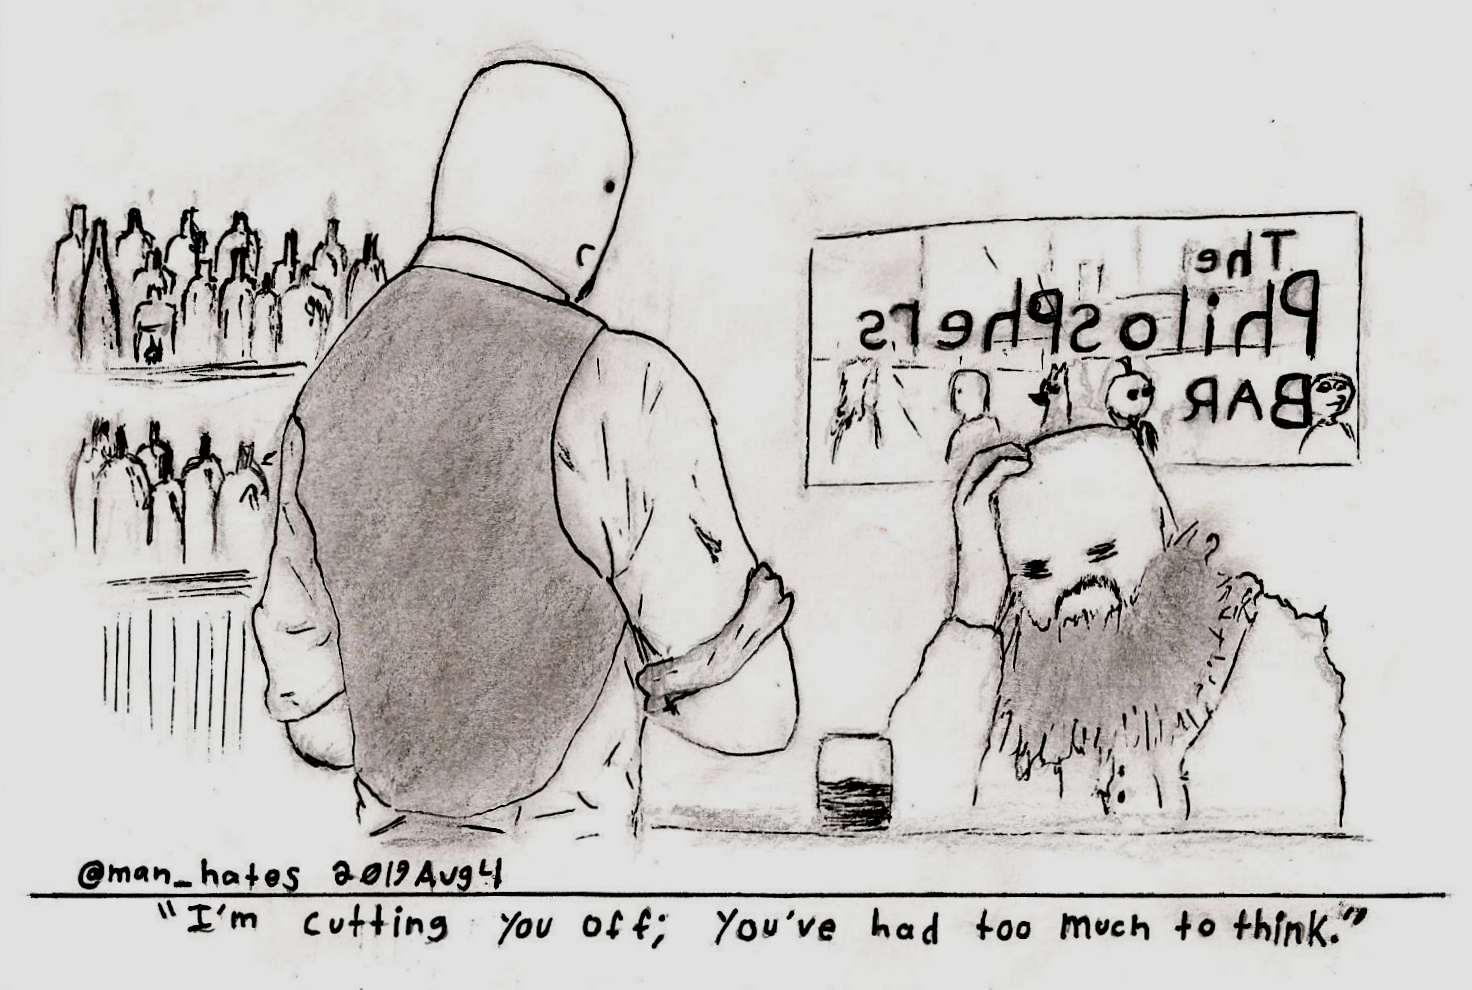 The
PhilosPhers
BAR
@man_hates 2019Aug4
"I'm cutting you off; you've had too much to think."